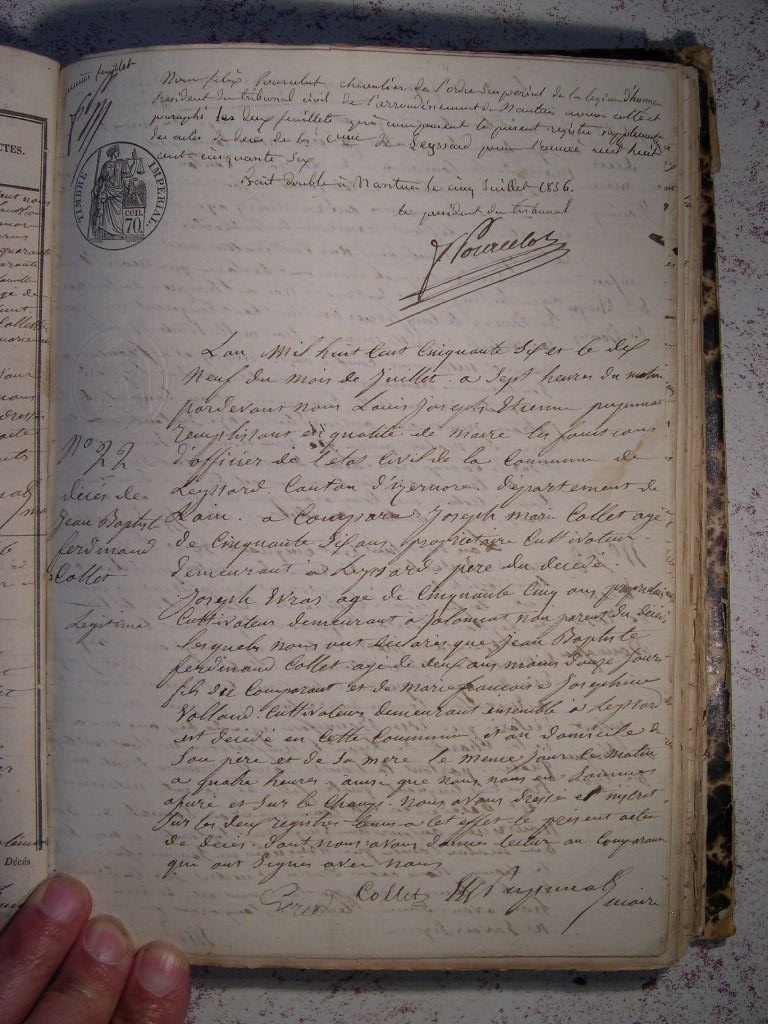 premier feuillet
Nous félix Pourcelot chevalier de l'ordre impérial de la légion d'honneur
Président du tribunal civil de l'arrondissement de Nantua avons coté et
paraphé les deux feuillets qui composent le présent registre
des actes de décès de la cune de Leyssard pour l'année mil huit
cent cinquante six
Fait double à Nantua le cinq Juillet 1856.
le président du tribunal
Pourcelot
TIMBRE IMPERIAL
70 cen
L'an Mil huit Cent Cinquante Six et le dix
Neuf du mois de Juillet a Sept heures du matin
pardevant nous Louis Joseph Etienne
remplissant en qualité de maire les fonctions
d'officier de l'etat Civil de la Commune de
Leyssard Canton d'izernore département de
L'ain. a Comparu Joseph Marie Collet agé
de Cinquante Six ans propriétaire Cultivateur
demeurant a Leyssard père du décédé.
Joseph age de Cinquante Cinq ans
Cultivateur demeurant a Solomiat non parent du décédé
Lesquels nous ont déclaré que Jean Baptiste
ferdinand Collet agé de deux ans moins douze Jours
fils du Comparant et de Marie francoise Josephine
Volland Cultivateurs demeurant ensemble a Leyssard
est décédé en Cette Commune et au domicile de
Son père et de Sa mère le meme Jour le matin
a quatre heures ainsi que nous nous en Sommes
assuré et Sur le Champ. Nous avons dressé et inscrit
Sur les deux registres tenus a Cet effet le présent acte
de décès. dont nous avons donné lecture au Comparant
qui ont Signés avec nous
Collet maire
No 22
décès de
Jean Baptiste
ferdinand
Collet
Legitime
CTES.
Décès